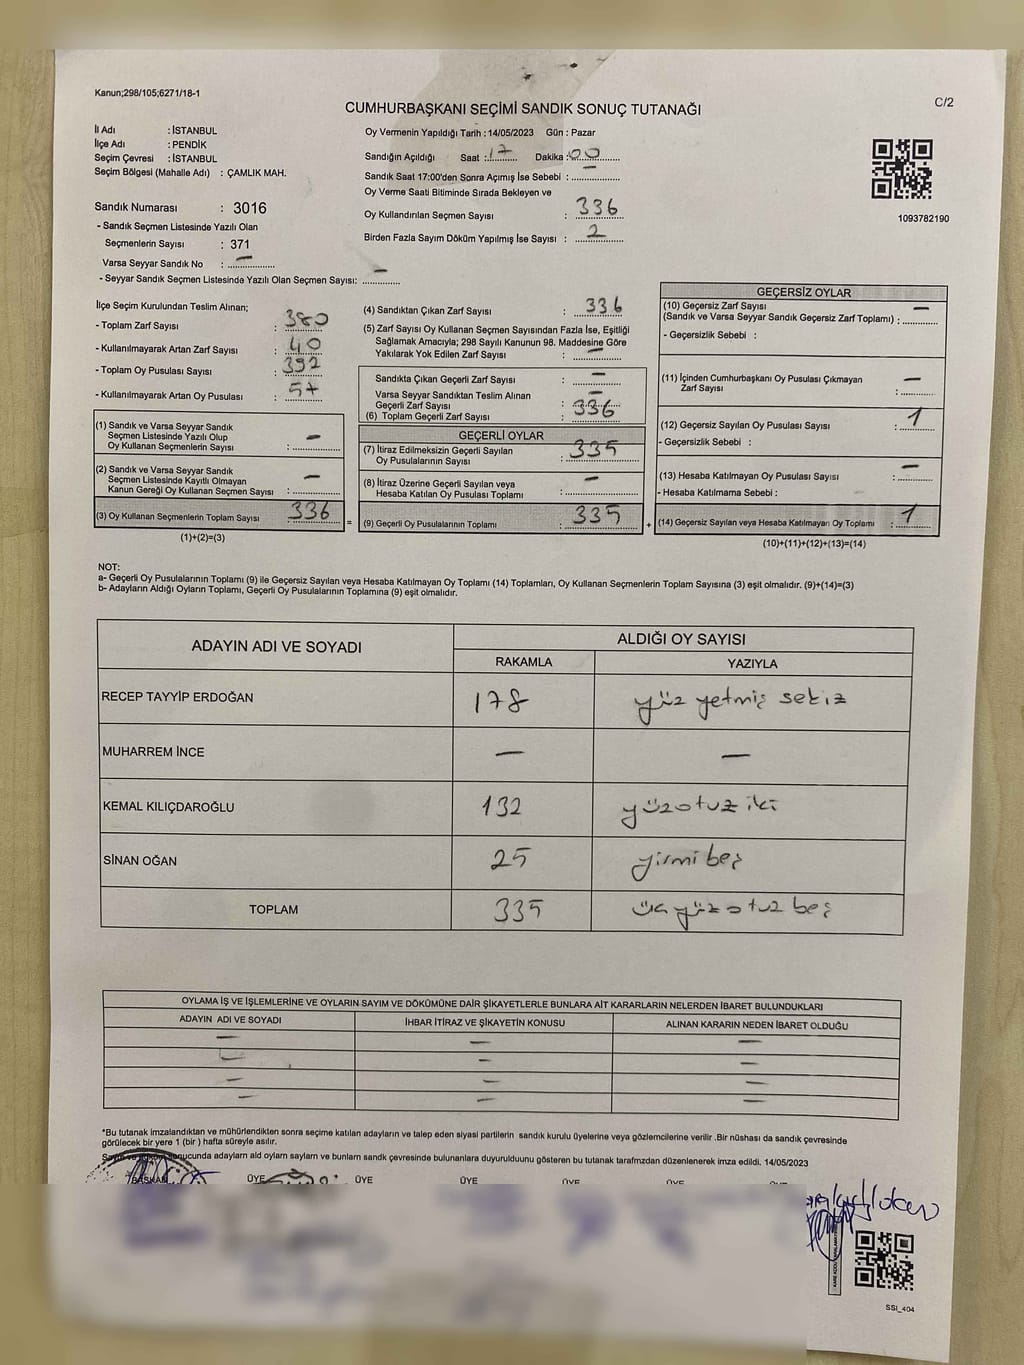 Kanun;298/105;6271/18-1
C/2
CUMHURBAŞKANI SEÇİMİ SANDIK SONUÇ TUTANAĞI
İl Adı : İSTANBUL
İlçe Adı : PENDİK
Seçim Çevresi : İSTANBUL
Seçim Bölgesi (Mahalle Adı) : ÇAMLIK MAH.
Sandık Numarası : 3016
- Sandık Seçmen Listesinde Yazılı Olan
Seçmenlerin Sayısı : 371
Varsa Seyyar Sandık No : —
- Seyyar Sandık Seçmen Listesinde Yazılı Olan Seçmen Sayısı: —
Oy Vermenin Yapıldığı Tarih : 14/05/2023 Gün : Pazar
Sandığın Açıldığı Saat : 17 Dakika : 00
Sandık Saat 17:00'den Sonra Açımış İse Sebebi : —
Oy Verme Saati Bitiminde Sırada Bekleyen ve
Oy Kullandırılan Seçmen Sayısı : 336
Birden Fazla Sayım Döküm Yapılmış İse Sayısı : 2
1093782190
İlçe Seçim Kurulundan Teslim Alınan;
- Toplam Zarf Sayısı : 380
- Kullanılmayarak Artan Zarf Sayısı : 40
- Toplam Oy Pusulası Sayısı : 392
- Kullanılmayarak Artan Oy Pusulası : 57
(1) Sandık ve Varsa Seyyar Sandık
Seçmen Listesinde Yazılı Olup
Oy Kullanan Seçmenlerin Sayısı : —
(2) Sandık ve Varsa Seyyar Sandık
Seçmen Listesinde Kayıtlı Olmayan
Kanun Gereği Oy Kullanan Seçmen Sayısı : —
(3) Oy Kullanan Seçmenlerin Toplam Sayısı : 336
(1)+(2)=(3)
=
(4) Sandıktan Çıkan Zarf Sayısı : 336
(5) Zarf Sayısı Oy Kullanan Seçmen Sayısından Fazla İse, Eşitliği
Sağlamak Amacıyla; 298 Sayılı Kanunun 98. Maddesine Göre
Yakılarak Yok Edilen Zarf Sayısı : —
Sandıkta Çıkan Geçerli Zarf Sayısı : —
Varsa Seyyar Sandıktan Teslim Alınan
Geçerli Zarf Sayısı : —
(6) Toplam Geçerli Zarf Sayısı : 336
GEÇERLİ OYLAR
(7) İtiraz Edilmeksizin Geçerli Sayılan
Oy Pusulalarının Sayısı : 335
(8) İtiraz Üzerine Geçerli Sayılan veya
Hesaba Katılan Oy Pusulası Toplamı : —
(9) Geçerli Oy Pusulalarının Toplamı : 335
+
GEÇERSİZ OYLAR
(10) Geçersiz Zarf Sayısı
(Sandık ve Varsa Seyyar Sandık Geçersiz Zarf Toplamı) : —
- Geçersizlik Sebebi :
(11) İçinden Cumhurbaşkanı Oy Pusulası Çıkmayan
Zarf Sayısı : —
(12) Geçersiz Sayılan Oy Pusulası Sayısı : 1
- Geçersizlik Sebebi :
(13) Hesaba Katılmayan Oy Pusulası Sayısı : —
- Hesaba Katılmama Sebebi :
(14) Geçersiz Sayılan veya Hesaba Katılmayan Oy Toplamı : 1
(10)+(11)+(12)+(13)=(14)
NOT:
a- Geçerli Oy Pusulalarının Toplamı (9) ile Geçersiz Sayılan veya Hesaba Katılmayan Oy Toplamı (14) Toplamları, Oy Kullanan Seçmenlerin Toplam Sayısına (3) eşit olmalıdır. (9)+(14)=(3)
b- Adayların Aldığı Oyların Toplamı, Geçerli Oy Pusulalarının Toplamına (9) eşit olmalıdır.
ADAYIN ADI VE SOYADI ALDIĞI OY SAYISI
RAKAMLA YAZIYLA
RECEP TAYYİP ERDOĞAN 178 yüz yetmiş sekiz
MUHARREM İNCE — —
KEMAL KILIÇDAROĞLU 132 yüzotuz iki
SİNAN OĞAN 25 yirmi beş
TOPLAM 335 üç yüz otuz beş
OYLAMA İŞ VE İŞLEMLERİNE VE OYLARIN SAYIM VE DÖKÜMÜNE DAİR ŞİKAYETLERLE BUNLARA AİT KARARLARIN NELERDEN İBARET BULUNDUKLARI
ADAYIN ADI VE SOYADI İHBAR İTİRAZ VE ŞİKAYETİN KONUSU ALINAN KARARIN NEDEN İBARET OLDUĞU
— — —
— — —
— — —
— — —
*Bu tutanak imzalandıktan ve mühürlendikten sonra seçime katılan adayların ve talep eden siyasi partilerin sandık kurulu üyelerine veya gözlemcilerine verilir .Bir nüshası da sandık çevresinde
görülecek bir yere 1 (bir ) hafta süreyle asılır.
sonucunda adayların ald oyların sayların ve bunların sandk çevresinde bulunanlara duyurulduunu gösteren bu tutanak tarafmzdan düzenlenerek imza edildi. 14/05/2023
BAŞKAN ÜYE ÜYE ÜYE ÜYE ÜYE
SSI_404